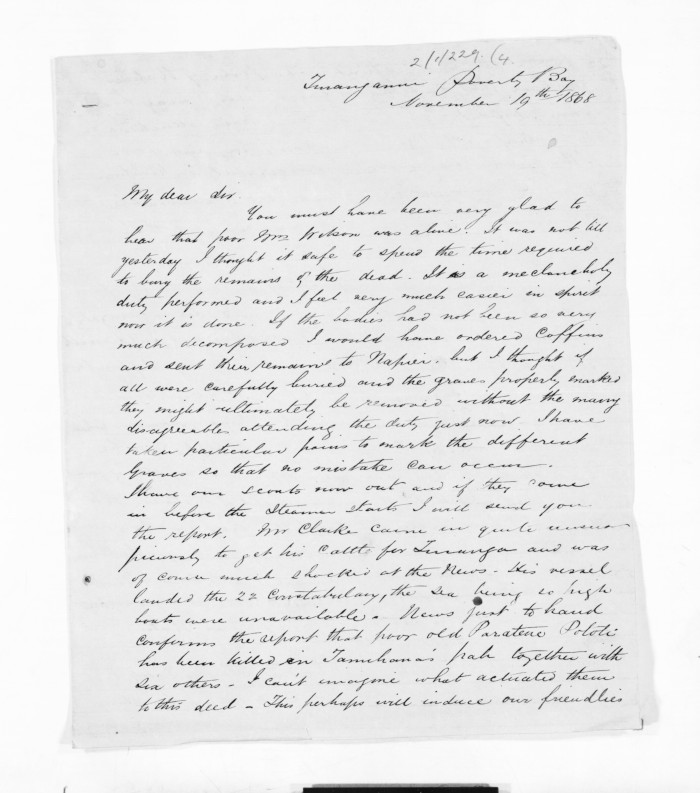 2/1/229. (4.
Turanganui Poverty Bay
November 19th 1868
My dear Sir.
You must have been very glad to
hear that poor Mrs Wilson was alive. It was not till
yesterday I thought it safe to spend the time required
to bury the remains of the dead. It is a melancholy
duty performed and I feel very much easier in spirit
now it is done. If the bodies had not been so very
much decomposed I would have ordered Coffins
and sent their remains to Napier. but I thought if
all were carefully buried and the graves properly marked
they might ultimately be removed without the many
disagreeables attending the duty just now. I have
taken particular pains to mark the different
Graves so that no mistake can occur.
I have our scouts now out and if they come
in before the Steamer starts I will send you
the report. Mr Clarke came in quite unsus
piciously to get his Cattle for Turanga and was
of course much shocked at the News - His vessel
landed the 22 Constabulary, the sea being so high
boats were unavailable. News just to hand
confirms the report that poor old Paratene Pototi
has been killed in Tamihana's pah together with
six others - I can't imagine what actuated them
to this deed - This perhaps will induce our friendlies